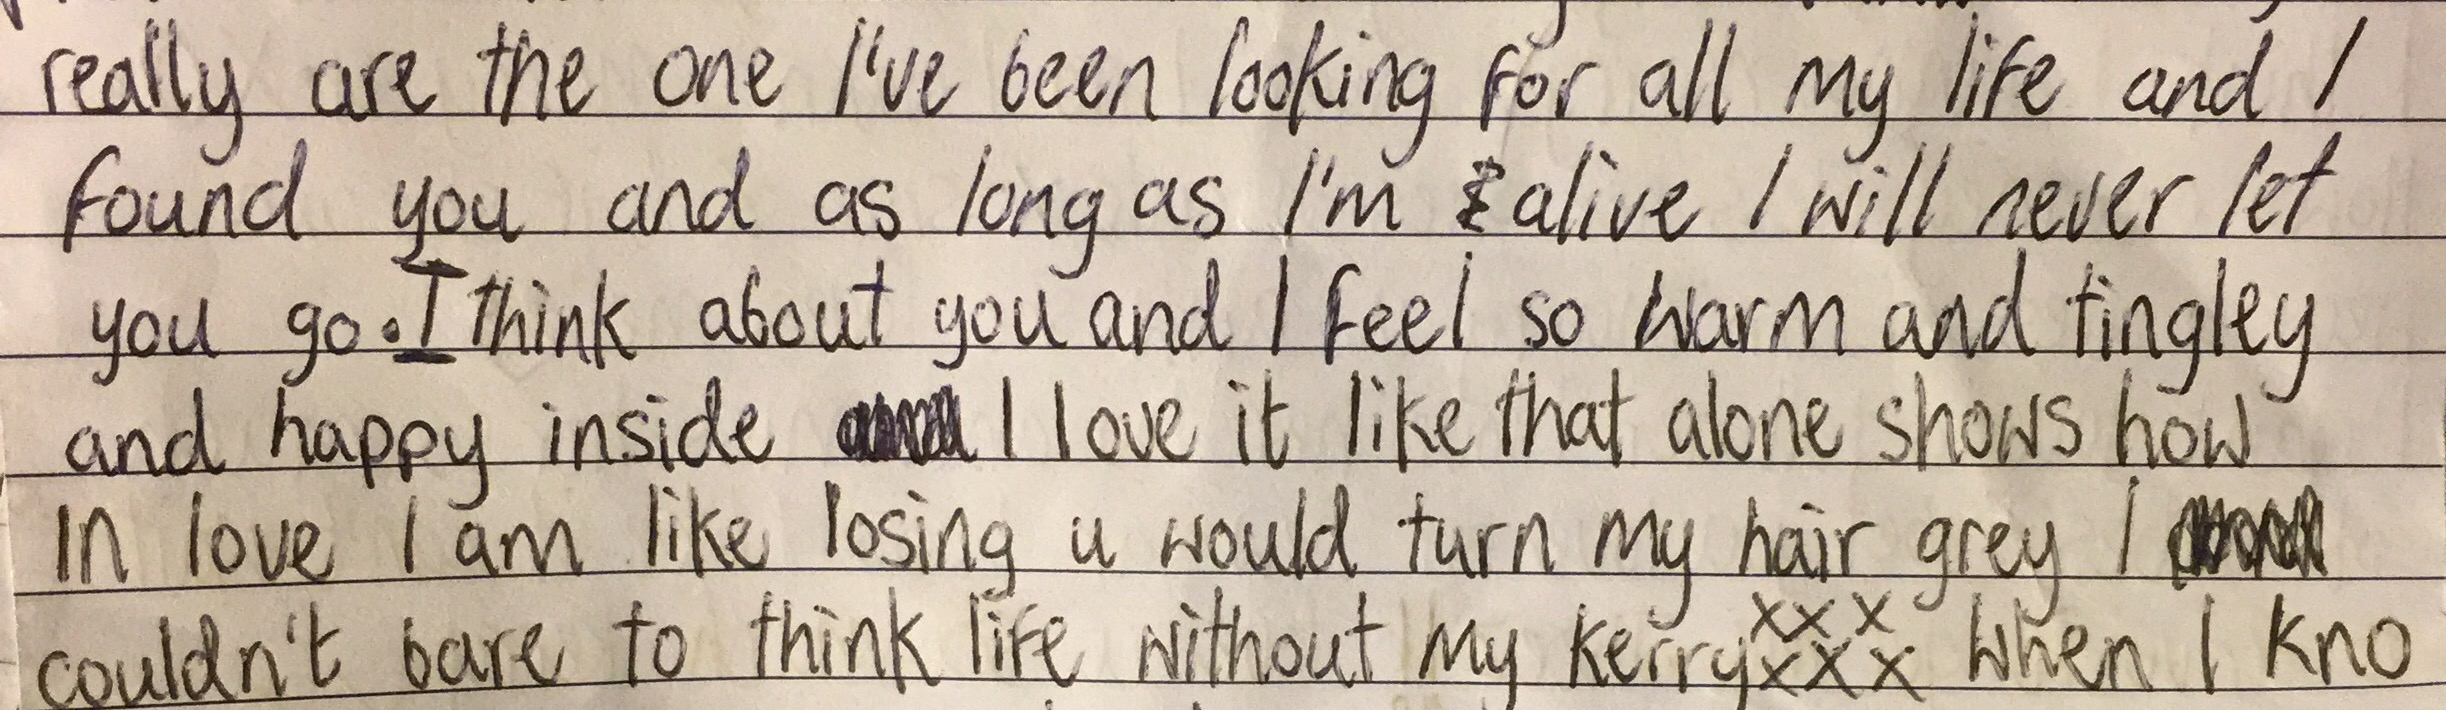 really are the one I've been looking for all my life and I
found you and as long as I'm alive I will never let
you go. I think about you and I feel so warm and tingley
and happy inside I love it like that alone shows how
In love I am like losing u would turn my hair grey I
couldn't bare to think life without my kerry xxx xxx When I kno